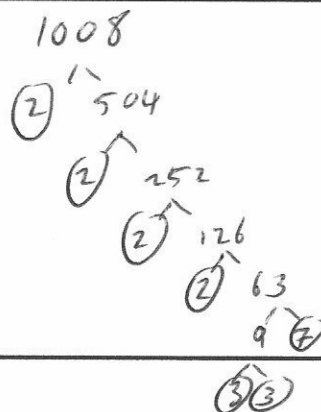 1008
2 504
2 252
2 126
2 63
9 7
3 3